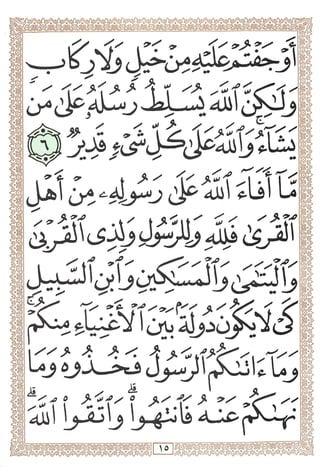 أَوْجَفْتُمْ عَلَيْهِ مِنْ خَيْلٍ وَلَا رِكَابٍ
وَلَٰكِنَّ ٱللَّهَ يُسَلِّطُ رُسُلَهُۥ عَلَىٰ مَن
يَشَآءُ ۚ وَٱللَّهُ عَلَىٰ كُلِّ شَىْءٍ قَدِيرٌ ٦
مَّآ أَفَآءَ ٱللَّهُ عَلَىٰ رَسُولِهِۦ مِنْ أَهْلِ
ٱلْقُرَىٰ فَلِلَّهِ وَلِلرَّسُولِ وَلِذِى ٱلْقُرْبَىٰ
وَٱلْيَتَٰمَىٰ وَٱلْمَسَٰكِينِ وَٱبْنِ ٱلسَّبِيلِ
كَىْ لَا يَكُونَ دُولَةًۢ بَيْنَ ٱلْأَغْنِيَآءِ مِنكُمْ ۚ
وَمَآ ءَاتَىٰكُمُ ٱلرَّسُولُ فَخُذُوهُ وَمَا
نَهَىٰكُمْ عَنْهُ فَٱنتَهُوا۟ ۚ وَٱتَّقُوا۟ ٱللَّهَ ۖ
١٥